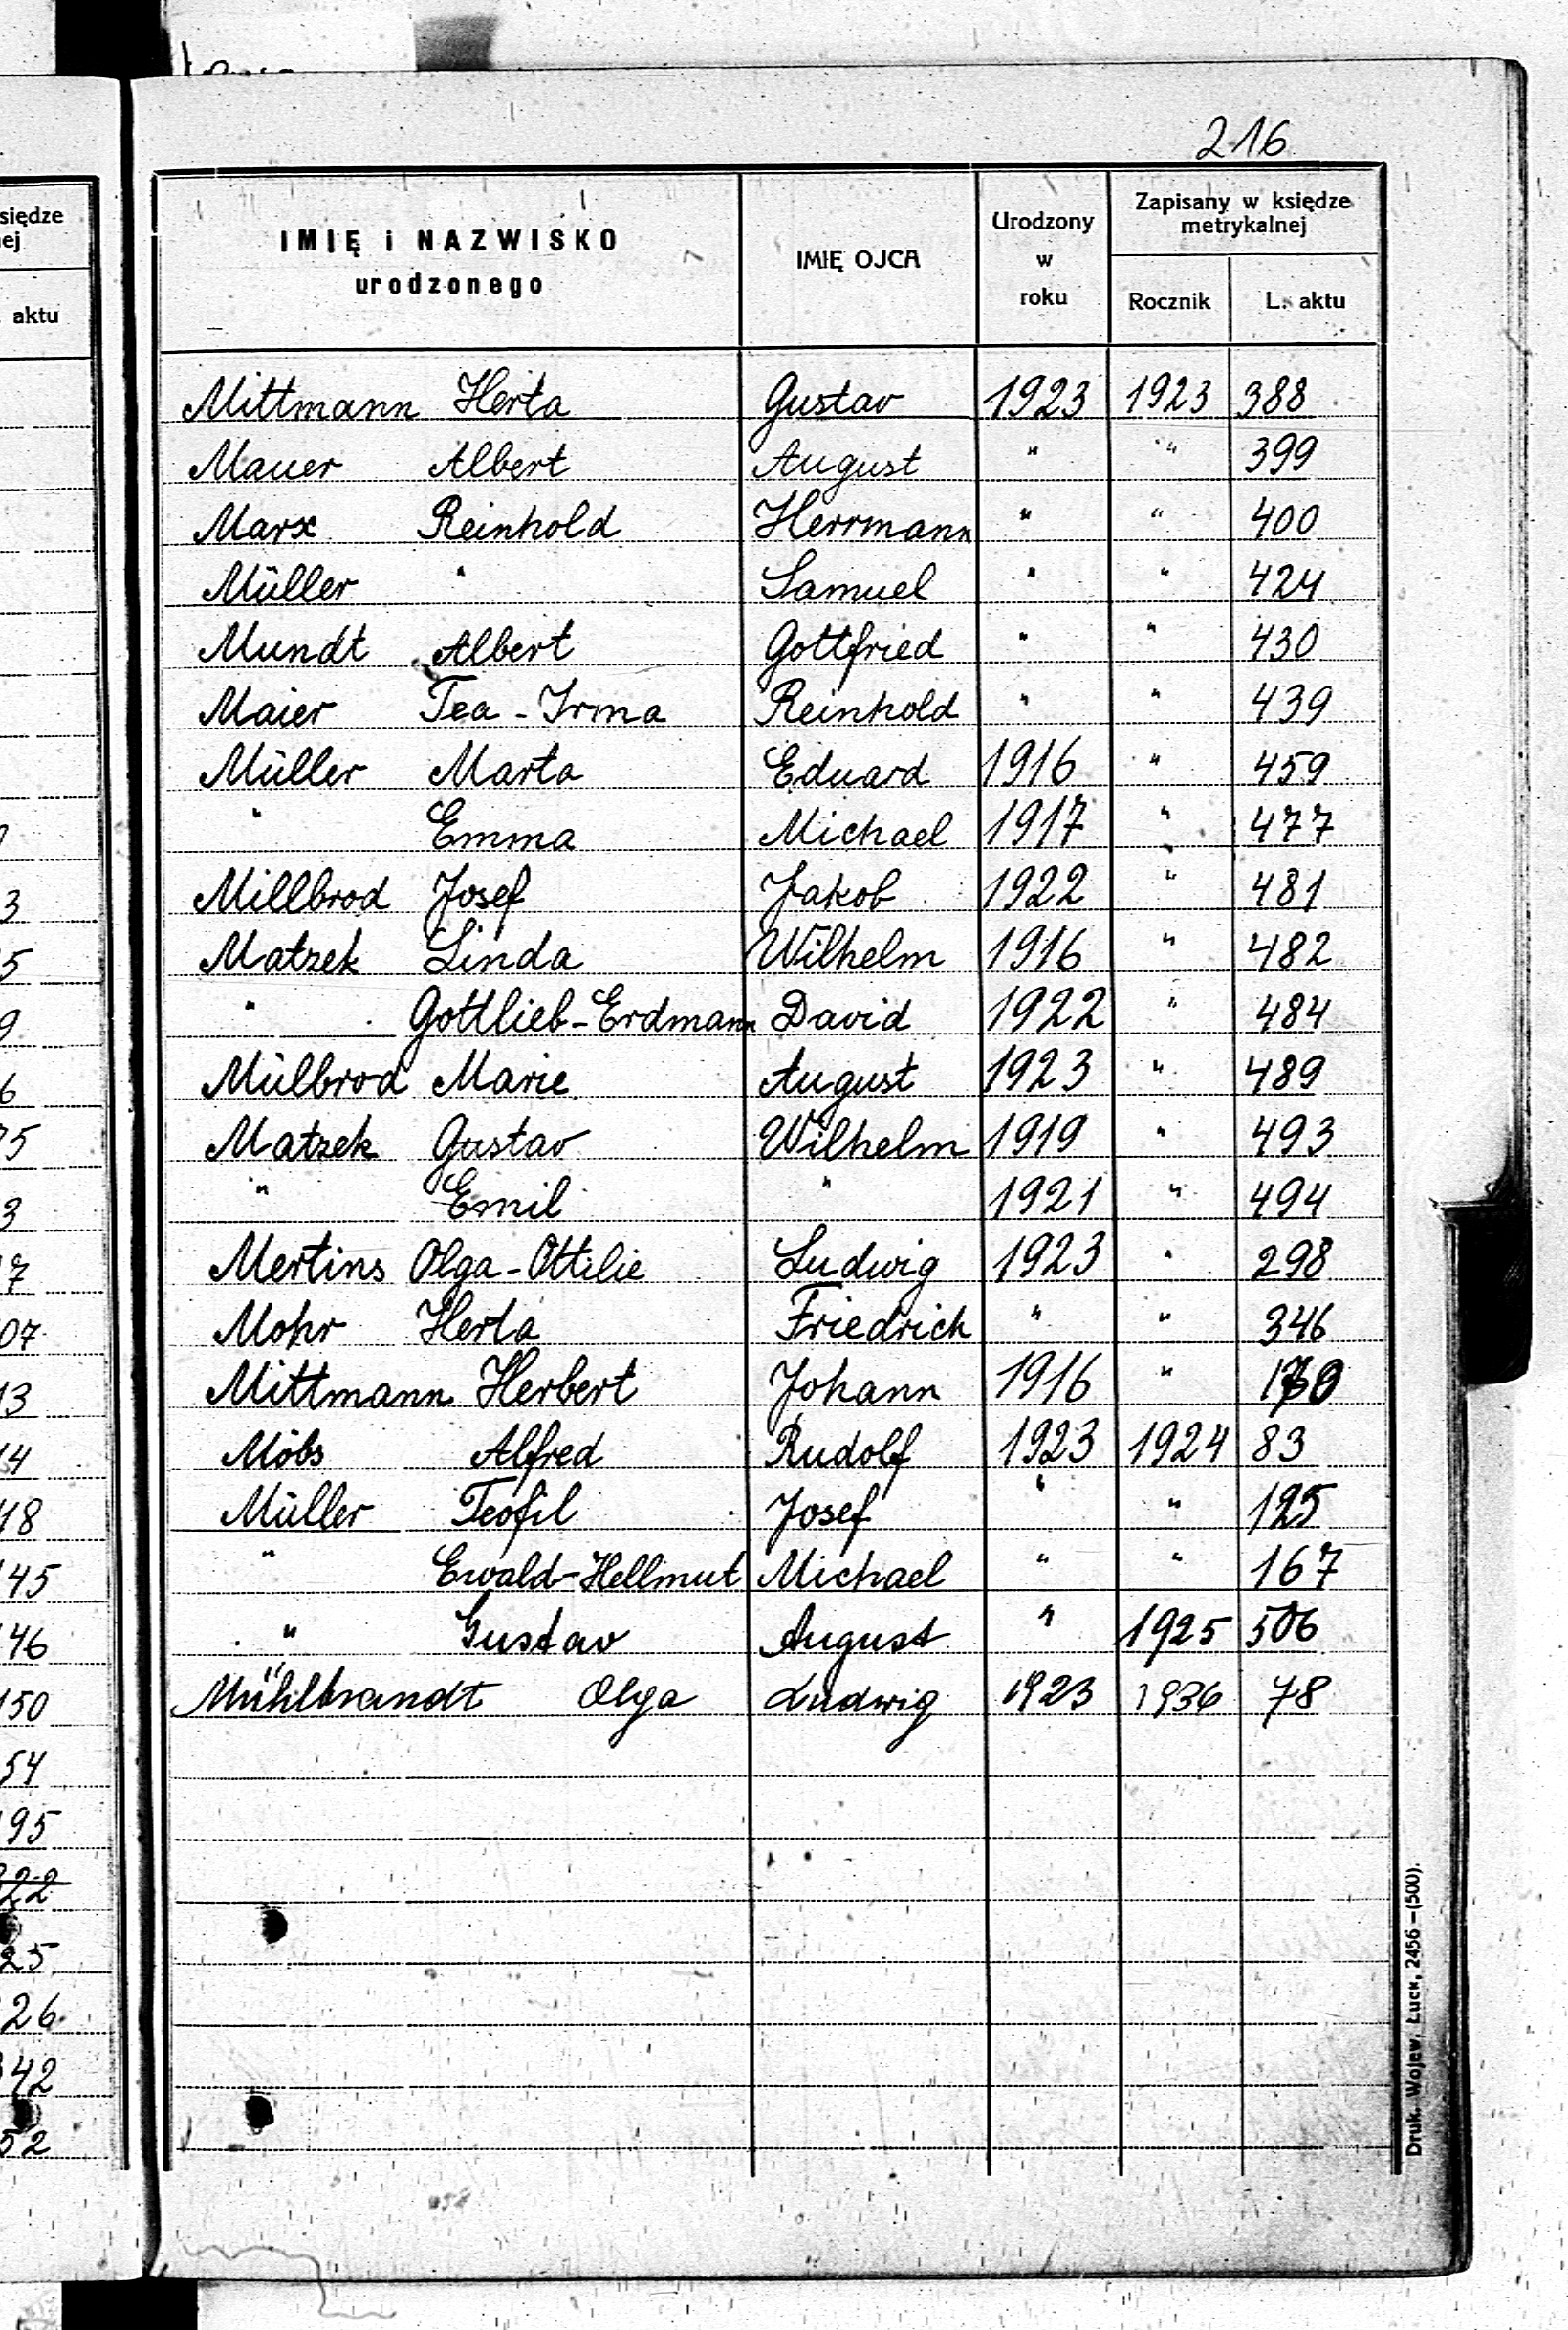 216
IMIĘ i NAZWISKO
urodzonego
IMIĘ OJCA
Urodzony
w
roku
Zapisany w księdze
metrykalnej
Rocznik L. aktu
Mittmann Herta Gustav 1923 1923 388
Mauer Albert August " " 399
Marx Reinhold Herrmann " " 400
Müller " Samuel " " 424
Mundt Albert Gottfried " " 430
Maier Tea-Irma Reinhold " " 439
Müller Marta Eduard 1916 " 459
" Emma Michael 1917 " 477
Millbrod Josef Jakob 1922 " 481
Matzek Linda Wilhelm 1916 " 482
" Gottlieb-Erdmann David 1922 " 484
Mülbrod Marie August 1923 " 489
Matzek Gustav Wilhelm 1919 " 493
" Emil " 1921 " 494
Mertins Olga-Ottilie Ludwig 1923 " 298
Mohr Herta Friedrich " " 346
Mittmann Herbert Johann 1916 "
Möbs Alfred Rudolf 1923 1924 83
Müller Teofil Josef " " 125
" Ewald-Hellmut Michael " " 167
" Gustav August " 1925 506
Mühlbrandt Olga Ludwig 1923 1936 78
Druk. Wojew. Łuck, 2456 – (500).
siędze
ej
aktu
3
5
9
6
5
3
7
07
13
14
18
45
46
150
54
95
22
25
26
42
52